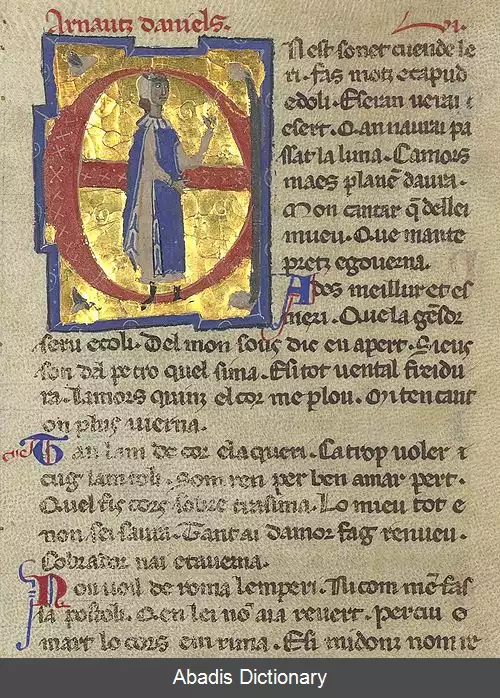 Arnautz daniels.
.VI.
N est sonet cuende le
ri. fas motz e capud
e doli. E seran uerai i
esert. O an naurai pa
ssat la lima. C amors
maes plane daura.
Mon cantar q̃ de llei
mueu. Que mante
pretz e gouerna.
A des meillur et es
meri. Que la gẽsor
seru e coli. Del mon sous dic en apert. Sieus
son dal pe tro quel sima. E si tot uental freidu
ra. L amors quinz el cor me plou. On ten caut
on plus uuerna.
Tan lam de cor e la queri. Ca trop uoler
cug lam toli. Som ren per ben amar pert.
Quel sis cors sobre trasima. Lo mieu tot e
non sei saura. Tant ai damor fag renueu.
Cobrador nai e tauerna.
Non uoil de roma lemperi. Ni com mẽ fas
la postoli. O en lei nõ aia reuert. Per cui
mart lo cors em rima. E si midonz nom re
Abadis Dictionary